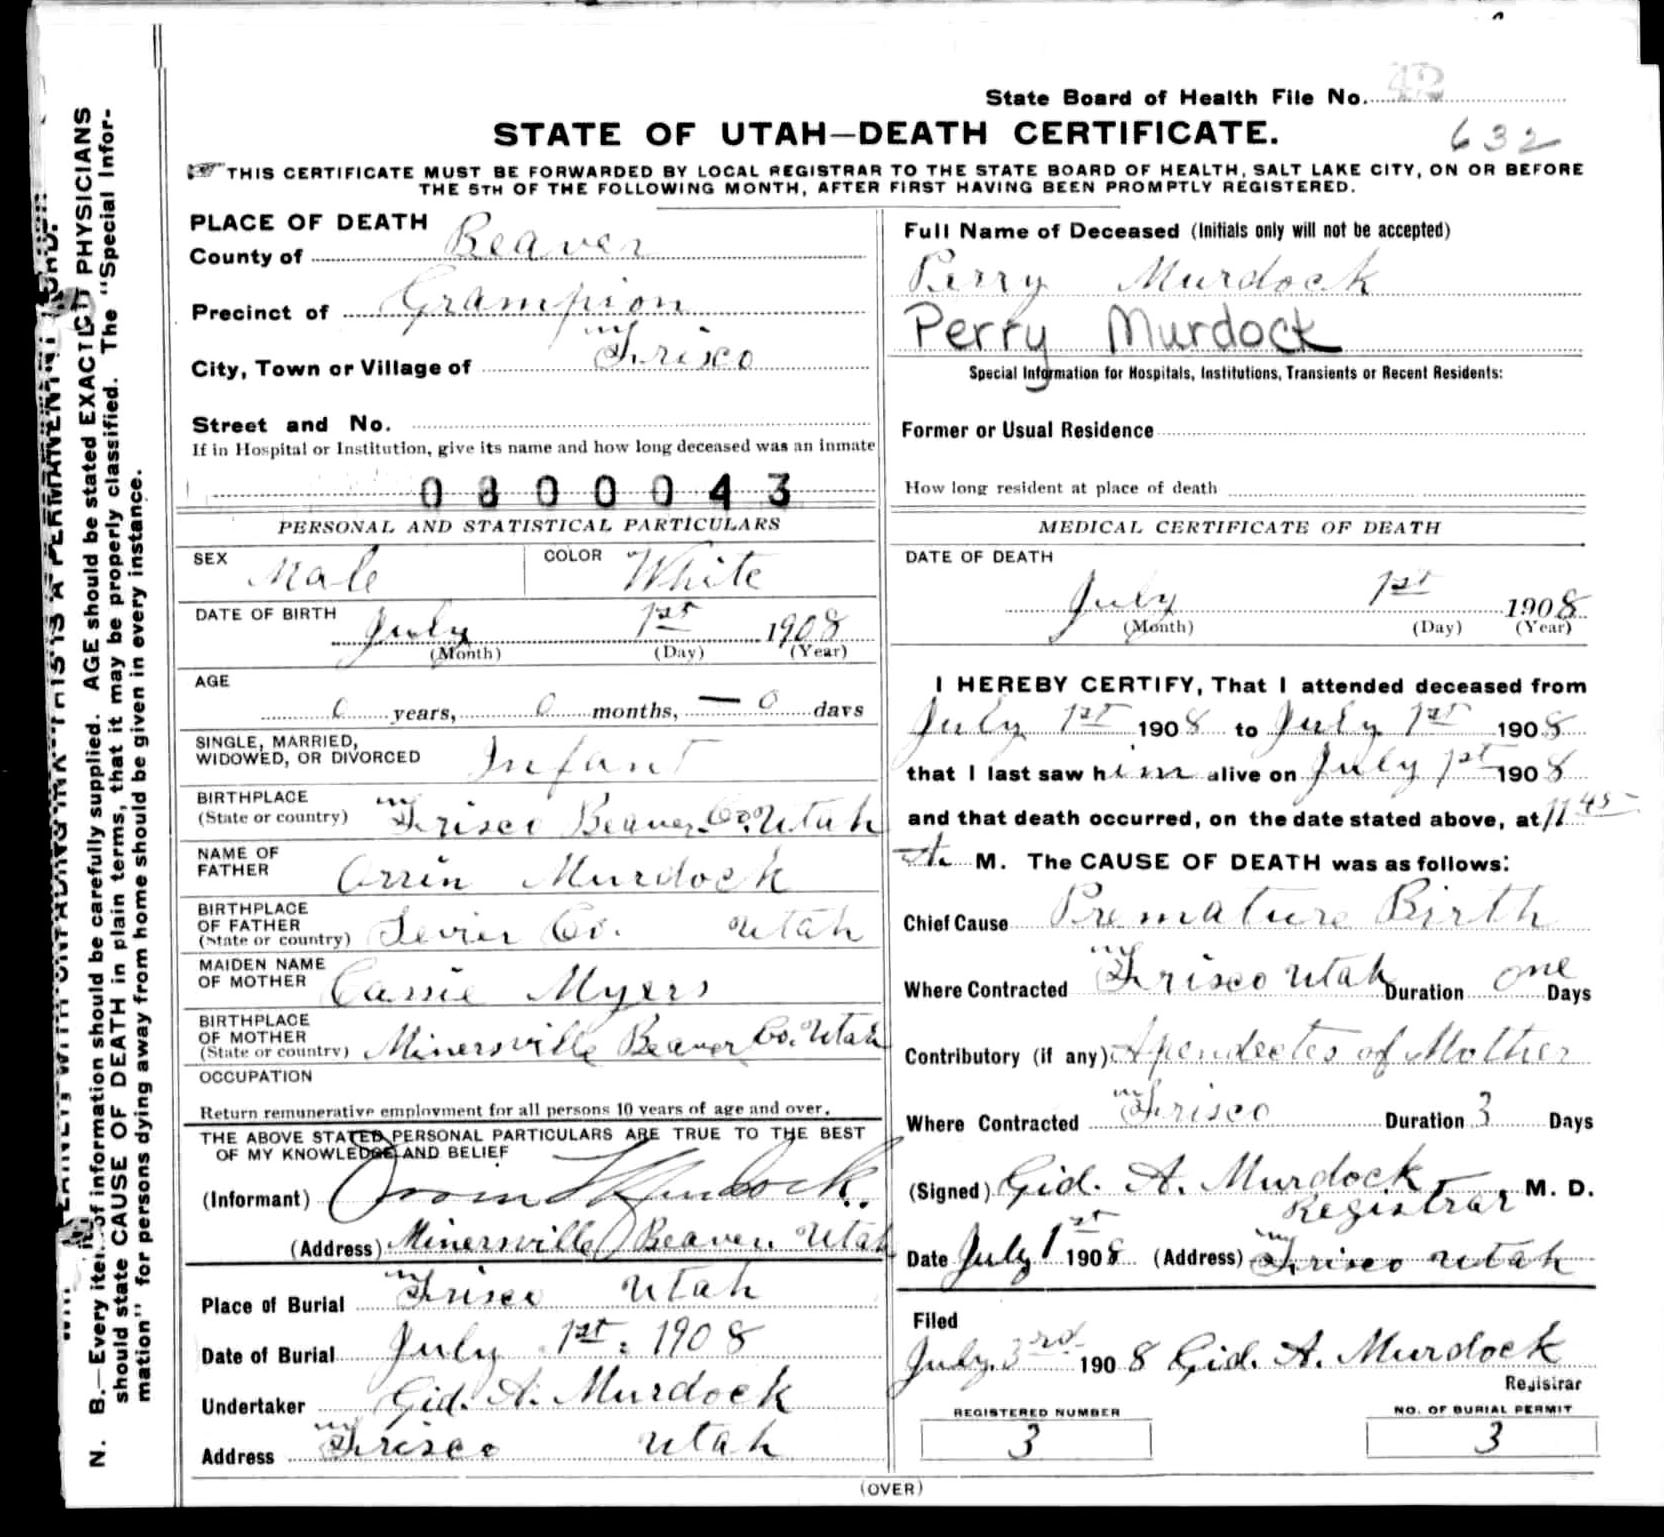 State Board of Health File No. 42
STATE OF UTAH—DEATH CERTIFICATE.
632
THIS CERTIFICATE MUST BE FORWARDED BY LOCAL REGISTRAR TO THE STATE BOARD OF HEALTH, SALT LAKE CITY, ON OR BEFORE
THE 5TH OF THE FOLLOWING MONTH, AFTER FIRST HAVING BEEN PROMPTLY REGISTERED.
PLACE OF DEATH
County of Beaver
Precinct of Grampion
City, Town or Village of Frisco
Street and No.
If in Hospital or Institution, give its name and how long deceased was an inmate
0800043
PERSONAL AND STATISTICAL PARTICULARS
SEX Male COLOR White
DATE OF BIRTH July 1st 1908
(Month) (Day) (Year)
AGE
0 years, 0 months, — 0 days
SINGLE, MARRIED,
WIDOWED, OR DIVORCED Infant
BIRTHPLACE
(State or country) Frisco Beaver Co. Utah
NAME OF
FATHER Orrin Murdock
BIRTHPLACE
OF FATHER
(State or country) Sevier Co. Utah
MAIDEN NAME
OF MOTHER Cassie Myers
BIRTHPLACE
OF MOTHER
(State or country) Minersville Beaver Co. Utah
OCCUPATION
Return remunerative employment for all persons 10 years of age and over.
THE ABOVE STATED PERSONAL PARTICULARS ARE TRUE TO THE BEST
OF MY KNOWLEDGE AND BELIEF
(Informant) Murdock
(Address) Minersville Beaver Utah
Place of Burial Frisco Utah
Date of Burial July 1st. 1908
Undertaker Gid. A. Murdock
Address Frisco Utah
Full Name of Deceased (Initials only will not be accepted)
Perry Murdock
Perry Murdock
Special Information for Hospitals, Institutions, Transients or Recent Residents:
Former or Usual Residence
How long resident at place of death
MEDICAL CERTIFICATE OF DEATH
DATE OF DEATH
July 1st 1908
(Month) (Day) (Year)
I HEREBY CERTIFY, That I attended deceased from
July 1st 1908 to July 1st 1908
that I last saw him alive on July 1st 1908
and that death occurred, on the date stated above, at 11 45
A. M. The CAUSE OF DEATH was as follows:
Chief Cause Premature Birth
Where Contracted Frisco Utah Duration one Days
Contributory (if any) Apendectes of Mother
Where Contracted Frisco Duration 3 Days
(Signed) Gid. A. Murdock, M. D.
Registrar
Date July 1st 1908 (Address) Frisco Utah
Filed
July 3rd 1908 Gid. A. Murdock
Registrar
REGISTERED NUMBER
3
NO. OF BURIAL PERMIT
3
(OVER)
N. B.—Every item of information should be carefully supplied. AGE should be stated EXACTLY PHYSICIANS
should state CAUSE OF DEATH in plain terms, that it may be properly classified. The "Special Infor-
mation" for persons dying away from home should be given in every instance.